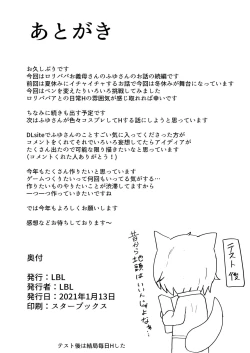 あとがき
お久しぶりです
今回はロリババお義母さんのふゆさんのお話の続編です
前回は夏休みにイチャイチャするお話で今回は冬休みが舞台になっています
今回はペンを変えたりいろいろ挑戦してみました
ロリババアとの日常Hの雰囲気が感じ取れれば幸いです
ちなみに続きも出す予定です
次はふゆさんが色々コスプレしてHする話にしようと思っています
DLsiteでふゆさんのことすごい気に入ってくださった方が
コメントをくれてそれでいろいろ妄想してたらアイディアが
たくさん出たので可能な限り描きたいなと思っています
(コメントくれた人ありがとう!)
今年もたくさん作りたいと思っています
ゲームも作りたいって何回もいってる気がする…
作りたいものやりたいことが渋滞してますから
一つ一つ作っていきたいですね
では今年もよろしくお願いします
感想などお待ちしております~
奥付
発行:LBL
発行者:LBL
発行日:2021年1月13日
印刷:スターブックス
テスト後
昔から地頭は
いいんじゃよなぁ…
テスト後は結局毎日Hした